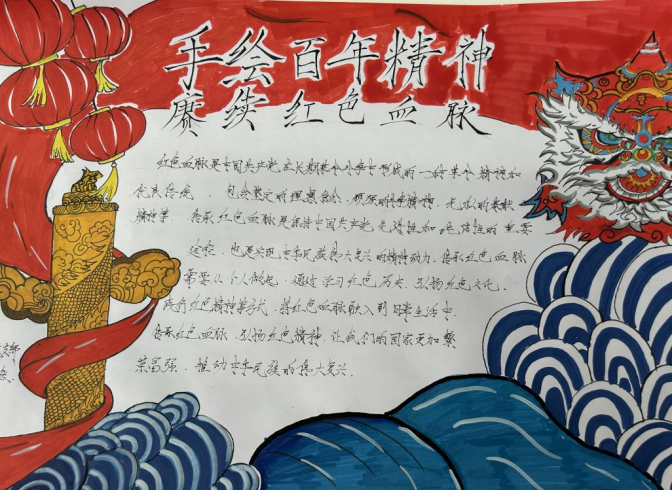 手绘百年精神
赓续红色血脉
红色血脉是中国共产党在长期革命斗争中形成的一种革命精神和
优良传统，包含坚定的理想信念、顽强的斗争精神、无私的奉献
精神等。传承红色血脉是保持中国共产党先进性和纯洁性的重要
途径，也是实现中华民族伟大复兴的精神动力。传承红色血脉
需要从个人做起，通过学习红色历史、弘扬红色文化、
践行红色精神等方式，将红色血脉融入到日常生活中。
传承红色血脉，弘扬红色精神，让我们的国家更加繁
荣富强，推动中华民族的伟大复兴。